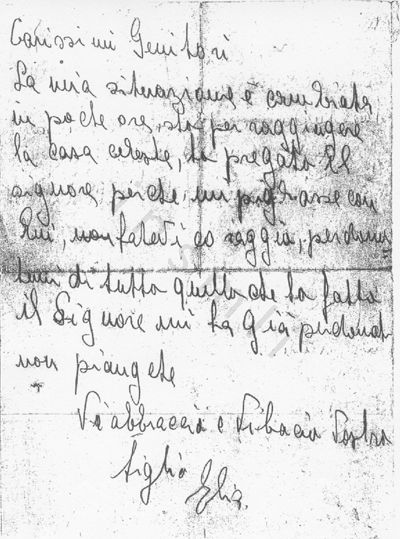 Carissimi Genitori
La mia situazione è cambiata
in poche ore, sto per raggiugere
la casa celeste, ho pregato Il
signore perche mi pigliasse con
Lui, non fatevi co raggio, perdona
temi di tutto quello che ho fatto
il Signore mi ha Già perdonat
non piangete
Vi abbraccio e Vi bacio Vostro
figlio Elia.